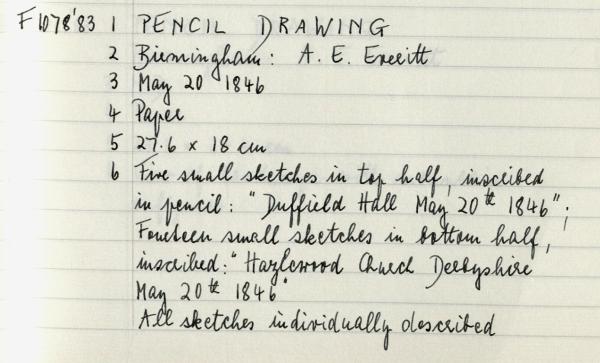 F1078'83 1 PENCIL DRAWING
2 Birmingham: A. E. Everitt
3 May 20 1846
4 Paper
5 27.6 x 18 cm
6 Five small sketches in top half, inscribed
in pencil: "Duffield Hall May 20th 1846";
Fourteen small sketches in bottom half,
inscribed: "Hazlewood Church Derbyshire
May 20th 1846"
All sketches individually described